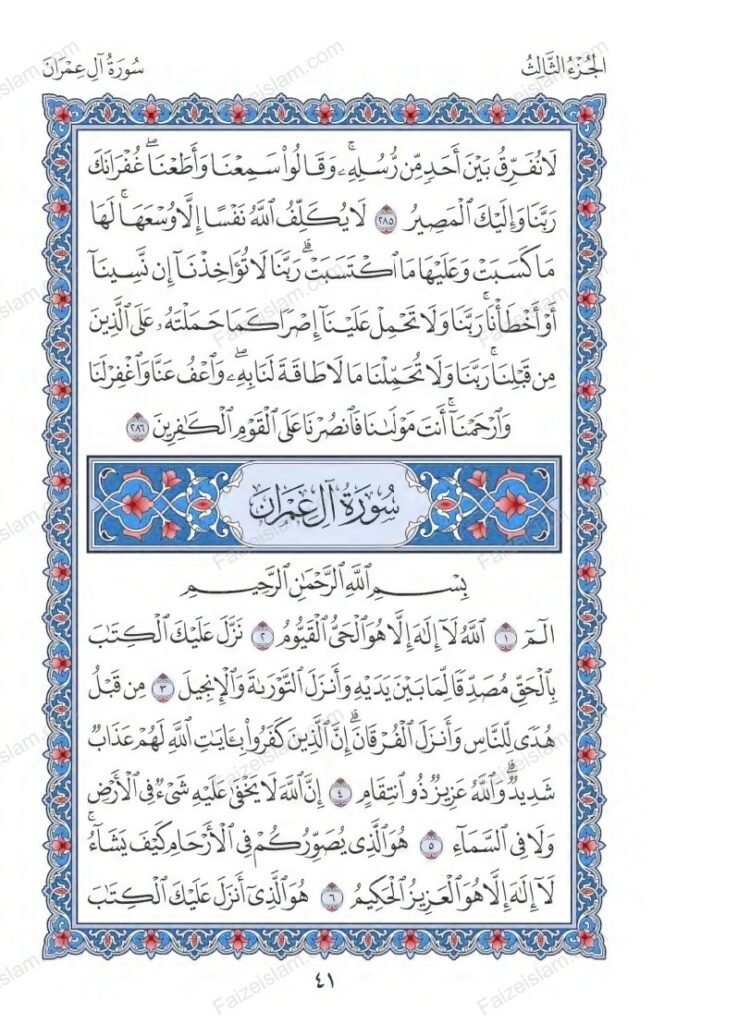 الجُزْءُ الثَّالِثُ
سُورَةُ آلِ عِمْرَانَ
لَا نُفَرِّقُ بَيْنَ أَحَدٍ مِّن رُّسُلِهِۦۚ وَقَالُوا۟ سَمِعْنَا وَأَطَعْنَاۖ غُفْرَانَكَ
رَبَّنَا وَإِلَيْكَ ٱلْمَصِيرُ ٢٨٥ لَا يُكَلِّفُ ٱللَّهُ نَفْسًا إِلَّا وُسْعَهَاۚ لَهَا
مَا كَسَبَتْ وَعَلَيْهَا مَا ٱكْتَسَبَتْۗ رَبَّنَا لَا تُؤَاخِذْنَآ إِن نَّسِينَآ
أَوْ أَخْطَأْنَاۚ رَبَّنَا وَلَا تَحْمِلْ عَلَيْنَآ إِصْرًا كَمَا حَمَلْتَهُۥ عَلَى ٱلَّذِينَ
مِن قَبْلِنَاۚ رَبَّنَا وَلَا تُحَمِّلْنَا مَا لَا طَاقَةَ لَنَا بِهِۦۖ وَٱعْفُ عَنَّا وَٱغْفِرْ لَنَا
وَٱرْحَمْنَآۚ أَنتَ مَوْلَىٰنَا فَٱنصُرْنَا عَلَى ٱلْقَوْمِ ٱلْكَٰفِرِينَ ٢٨٦
سُورَةُ آلِ عِمْرَانَ
بِسْمِ ٱللَّهِ ٱلرَّحْمَٰنِ ٱلرَّحِيمِ
الٓمٓ ١ ٱللَّهُ لَآ إِلَٰهَ إِلَّا هُوَ ٱلْحَىُّ ٱلْقَيُّومُ ٢ نَزَّلَ عَلَيْكَ ٱلْكِتَٰبَ
بِٱلْحَقِّ مُصَدِّقًا لِّمَا بَيْنَ يَدَيْهِ وَأَنزَلَ ٱلتَّوْرَىٰةَ وَٱلْإِنجِيلَ ٣ مِن قَبْلُ
هُدًى لِّلنَّاسِ وَأَنزَلَ ٱلْفُرْقَانَۗ إِنَّ ٱلَّذِينَ كَفَرُوا۟ بِـَٔايَٰتِ ٱللَّهِ لَهُمْ عَذَابٌ
شَدِيدٌۗ وَٱللَّهُ عَزِيزٌ ذُو ٱنتِقَامٍ ٤ إِنَّ ٱللَّهَ لَا يَخْفَىٰ عَلَيْهِ شَىْءٌ فِى ٱلْأَرْضِ
وَلَا فِى ٱلسَّمَآءِ ٥ هُوَ ٱلَّذِى يُصَوِّرُكُمْ فِى ٱلْأَرْحَامِ كَيْفَ يَشَآءُۚ
لَآ إِلَٰهَ إِلَّا هُوَ ٱلْعَزِيزُ ٱلْحَكِيمُ ٦ هُوَ ٱلَّذِىٓ أَنزَلَ عَلَيْكَ ٱلْكِتَٰبَ
٤١
Faizeislam.com